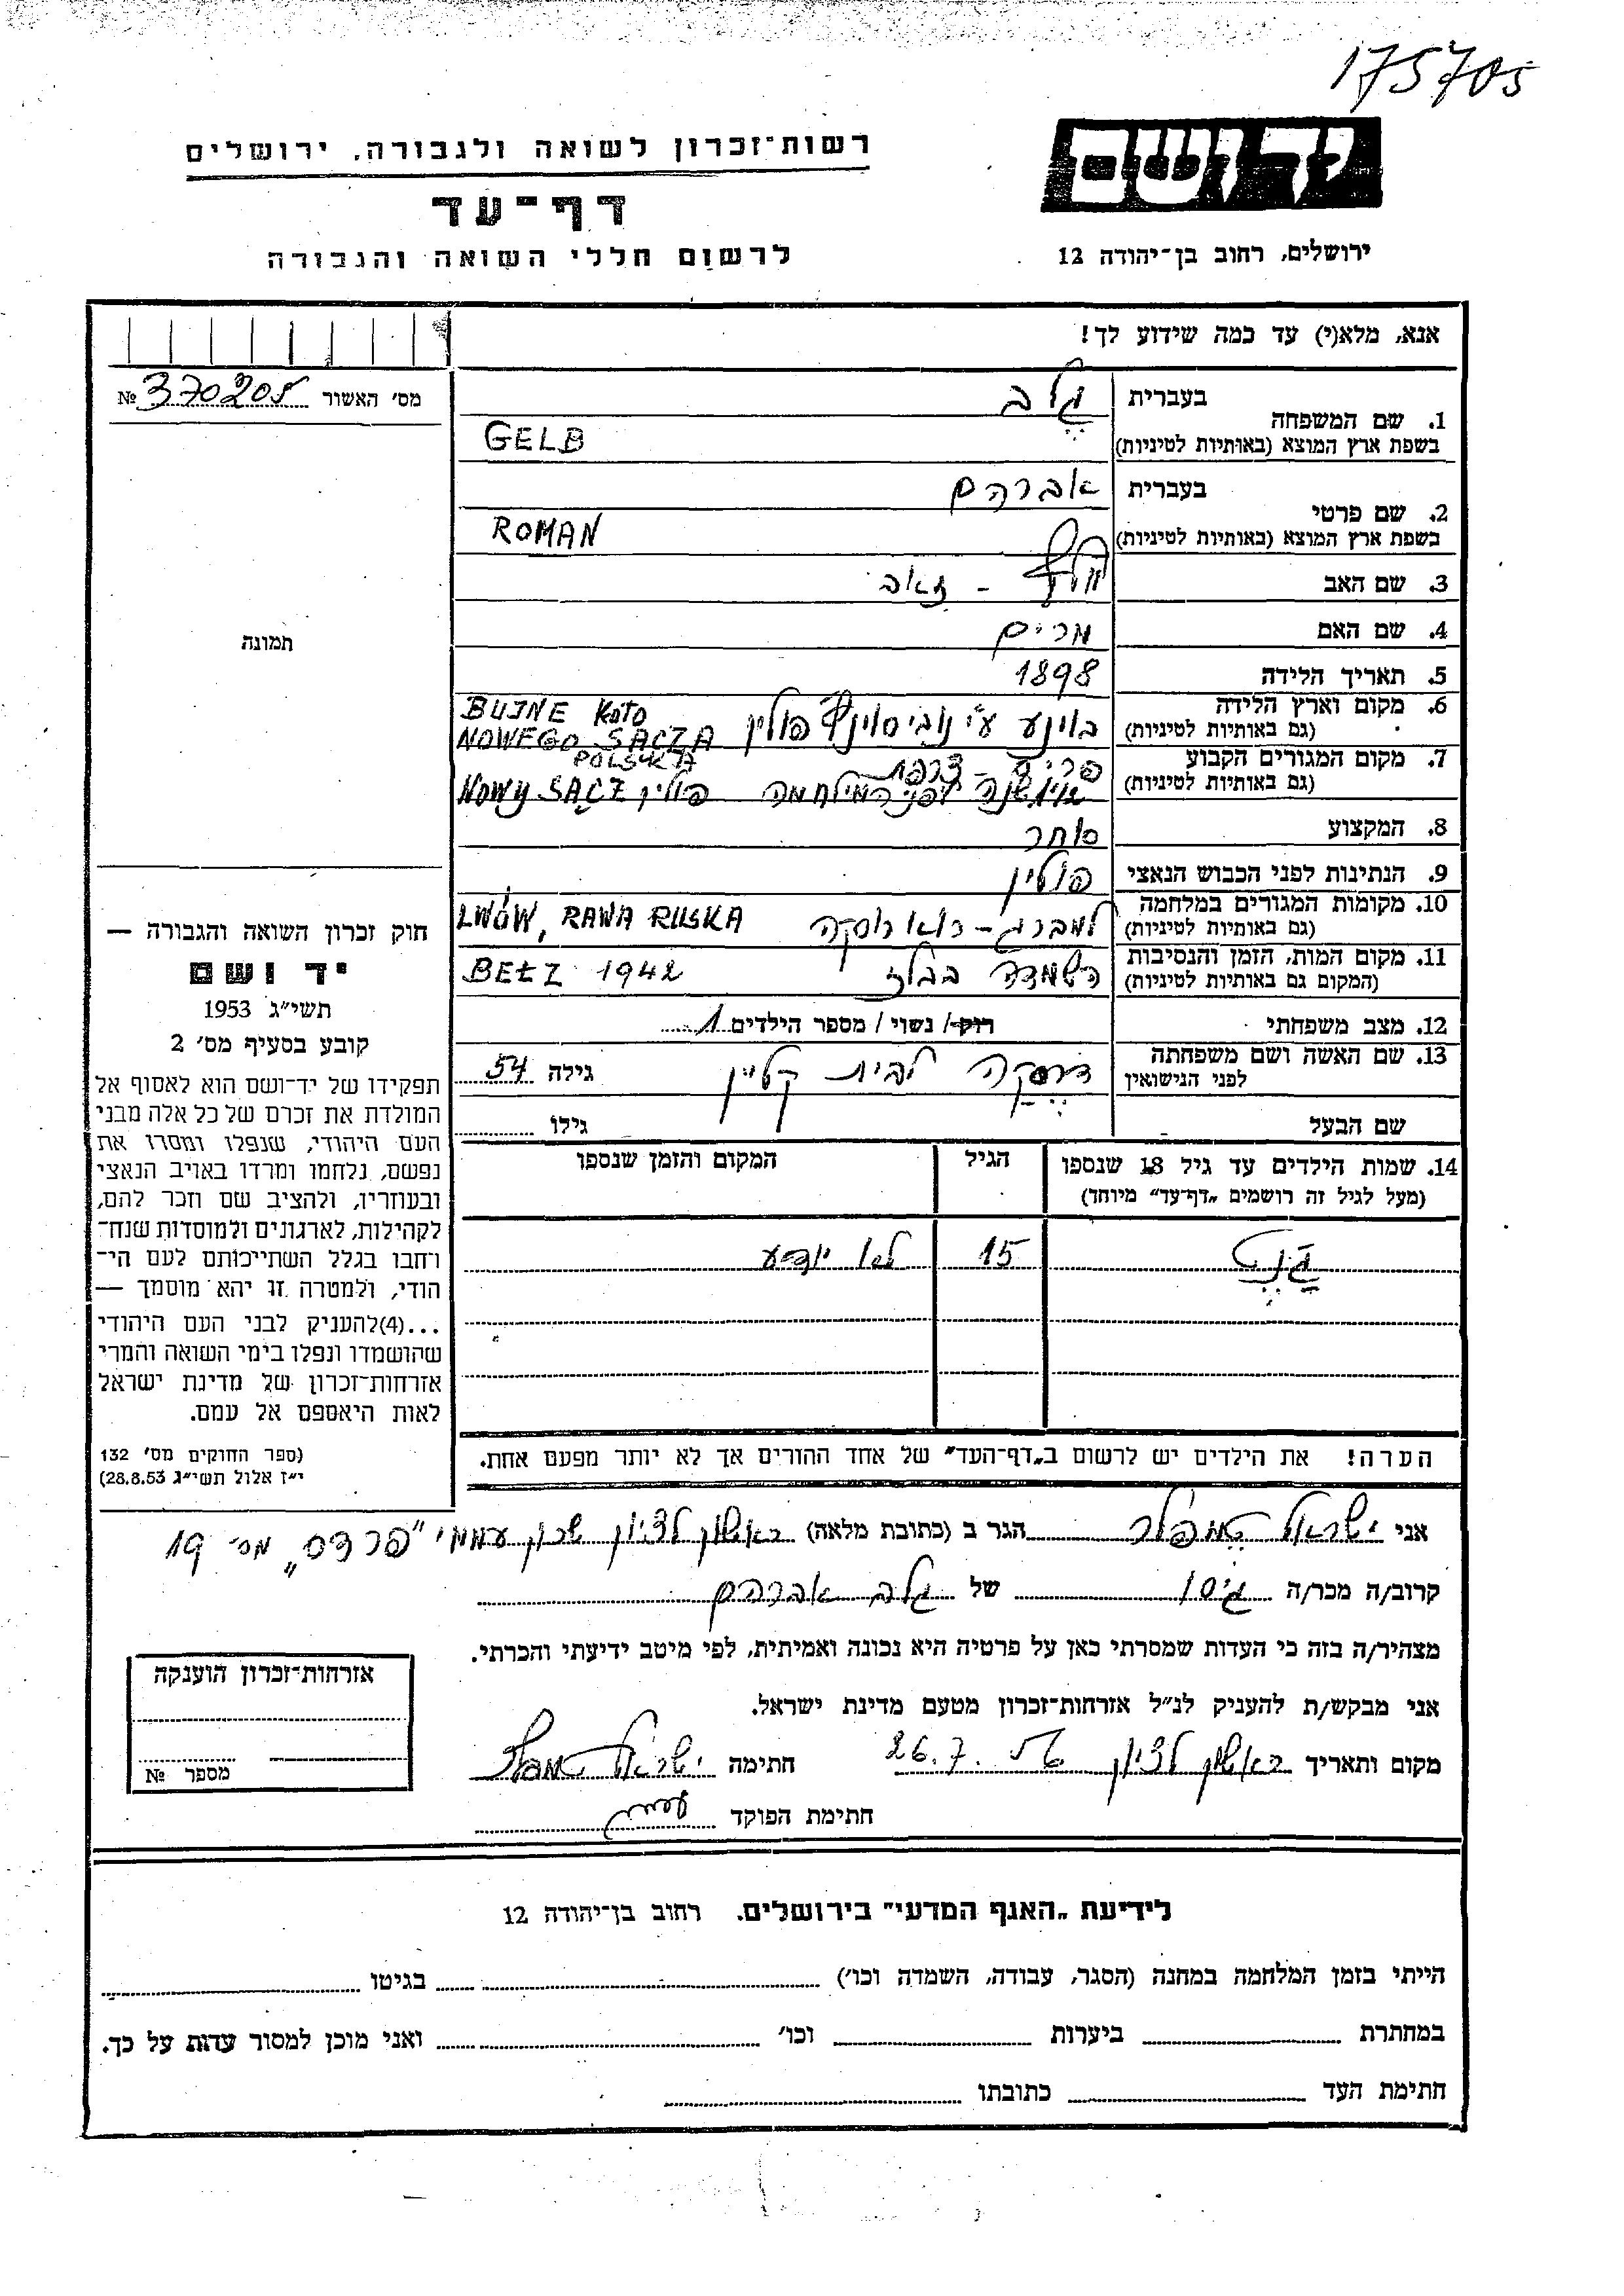 175705
יד ושם
רשות־זכרון לשואה ולגבורה, ירושלים
דף־עד
לרשום חללי השואה והגבורה
ירושלים, רחוב בן־יהודה 12
אנא, מלא(י) עד כמה שידוע לך!
מס' האשור 370205 №
תמונה
1. שם המשפחה
בעברית גלב
בשפת ארץ המוצא (באותיות לטיניות) GELB
2. שם פרטי
בעברית אברהם
בשפת ארץ המוצא (באותיות לטיניות) ROMAN
3. שם האב - זאב
4. שם האם מרים
5. תאריך הלידה 1898
6. מקום וארץ הלידה
(גם באותיות לטיניות) פולין BUJNE KOŁO
NOWEGO SĄCZA
POLSKA
7. מקום המגורים הקבוע פריז - צרפת
(גם באותיות לטיניות) שנה לפני המילחמה פולין NOWY SĄCZ
8. המקצוע סוחר
9. הנתינות לפני הכבוש הנאצי פולין
10. מקומות המגורים במלחמה
(גם באותיות לטיניות) למברג - רוא רוסקה LWÓW, RAWA RUSKA
11. מקום המות, הזמן והנסיבות
(המקום גם באותיות לטיניות) השמדה בבלז BEŁZ 1942
12. מצב משפחתי רוק / נשוי / מספר הילדים 1
13. שם האשה ושם משפחתה
לפני הנישואין לבית קליין גילה 54
שם הבעל גילו
14. שמות הילדים עד גיל 18 שנספו
(מעל לגיל זה רושמים „דף־עד" מיוחד)
הגיל
המקום והזמן שנספו
15 לא יודע
הערה! את הילדים יש לרשום ב„דף־העד" של אחד ההורים אך לא יותר מפעם אחת.
חוק זכרון השואה והגבורה —
יד ושם
תשי"ג 1953
קובע בסעיף מס' 2
תפקידו של יד־ושם הוא לאסוף אל
המולדת את זכרם של כל אלה מבני
העם היהודי, שנפלו ומסרו את
נפשם, נלחמו ומרדו באויב הנאצי
ובעוזריו, ולהציב שם וזכר להם,
לקהילות, לארגונים ולמוסדות שנח־
רחבו בגלל השתייכותם לעם הי־
הודי, ולמטרה זו יהא מוסמך —
...(4)להעניק לבני העם היהודי
שהושמדו ונפלו בימי השואה והמרי
אזרחות־זכרון של מדינת ישראל
לאות היאספם אל עמם.
(ספר החוקים מס' 132
י"ז אלול תשי"ג 28.8.53)
אני ישראל הגר ב (כתובת מלאה) ראשון לציון שכון עממי "פרדס" מס' 19
קרוב/ה מכר/ה גיסו של גלב אברהם
מצהיר/ה בזה כי העדות שמסרתי כאן על פרטיה היא נכונה ואמיתית, לפי מיטב ידיעתי והכרתי.
אני מבקש/ת להעניק לנ"ל אזרחות־זכרון מטעם מדינת ישראל.
מקום ותאריך ראשון לציון 26.7.56 חתימה ישראל
חתימת הפוקד
אזרחות־זכרון הוענקה
מספר №
לידיעת „האגף המדעי" בירושלים. רחוב בן־יהודה 12
הייתי בזמן המלחמה במחנה (הסגר, עבודה, השמדה וכו') בגיטו
במחתרת ביערות וכו' ואני מוכן למסור עדות על כך.
חתימת העד כתובתו